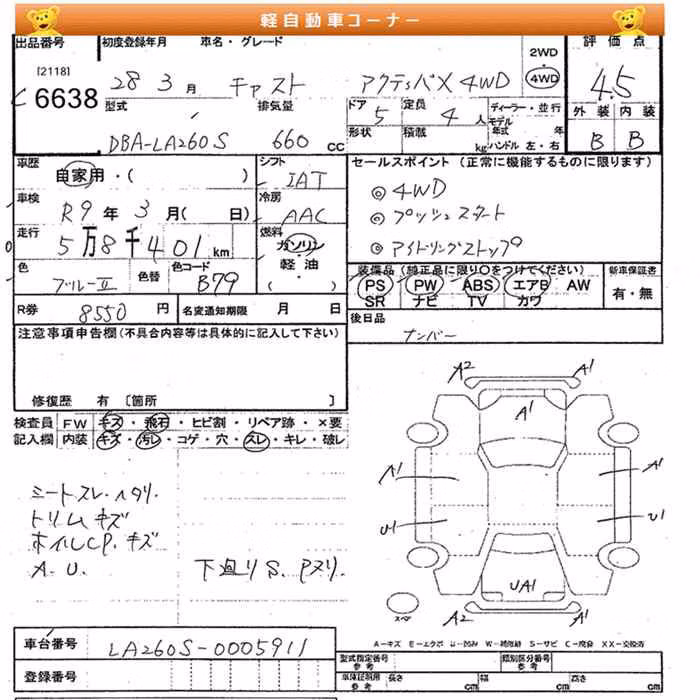 軽自動車コーナー
出品番号 初度登録年月 車名・グレード 2WD 4WD 評価点
[2118] 6638 28 3月 キャスト アクティバX 4WD 4.5
型式 排気量 ドア 定員 ディーラー・並行 外装 内装
DBA-LA260S 660 cc 5 4人 モデル年式 年 B B
形状 積載 kg ハンドル 左・右
車歴 自家用・( ) シフト IAT セールスポイント (正常に機能するものに限ります)
車検 R9年 3月( 日) 冷房 AAC ◎4WD
走行 5万8千401km 燃料 ガソリン ◎プッシュスタート
軽・油 ( ) ◎アイドリングストップ
色 ブルーII 色替 色コード B79 装備品 (純正品に限り○をつけてください) 新車保証書
PS PW ABS エアB AW 有・無
SR ナビ TV カワ
R券 8550円 名変通知期限 月 日 後日品
ナンバー
注意事項申告欄(不具合内容等は具体的に記入して下さい)
修復歴 有 〔箇所 〕
検査員 FW キズ・飛石・ヒビ割・リペア跡・×要
記入欄 内装 キズ・汚レ・コゲ・穴・スレ・キレ・破レ
A2 A1
A1
A1 A1
U1 U1
UA1
A2 A1
スペア
シートスレ.ヘタリ.
トリムキズ
ホイルCP.キズ
A.U. 下廻りS.Pヌリ.
A-キズ E-エクボ U-凹み W-補修跡 S-サビ C-腐食 XX-交換済
車台番号 LA260S-0005911
登録番号
型式指定番号 参考 類別区分番号 参考
車庫証明用 参考 長さ cm 幅 cm 高さ cm